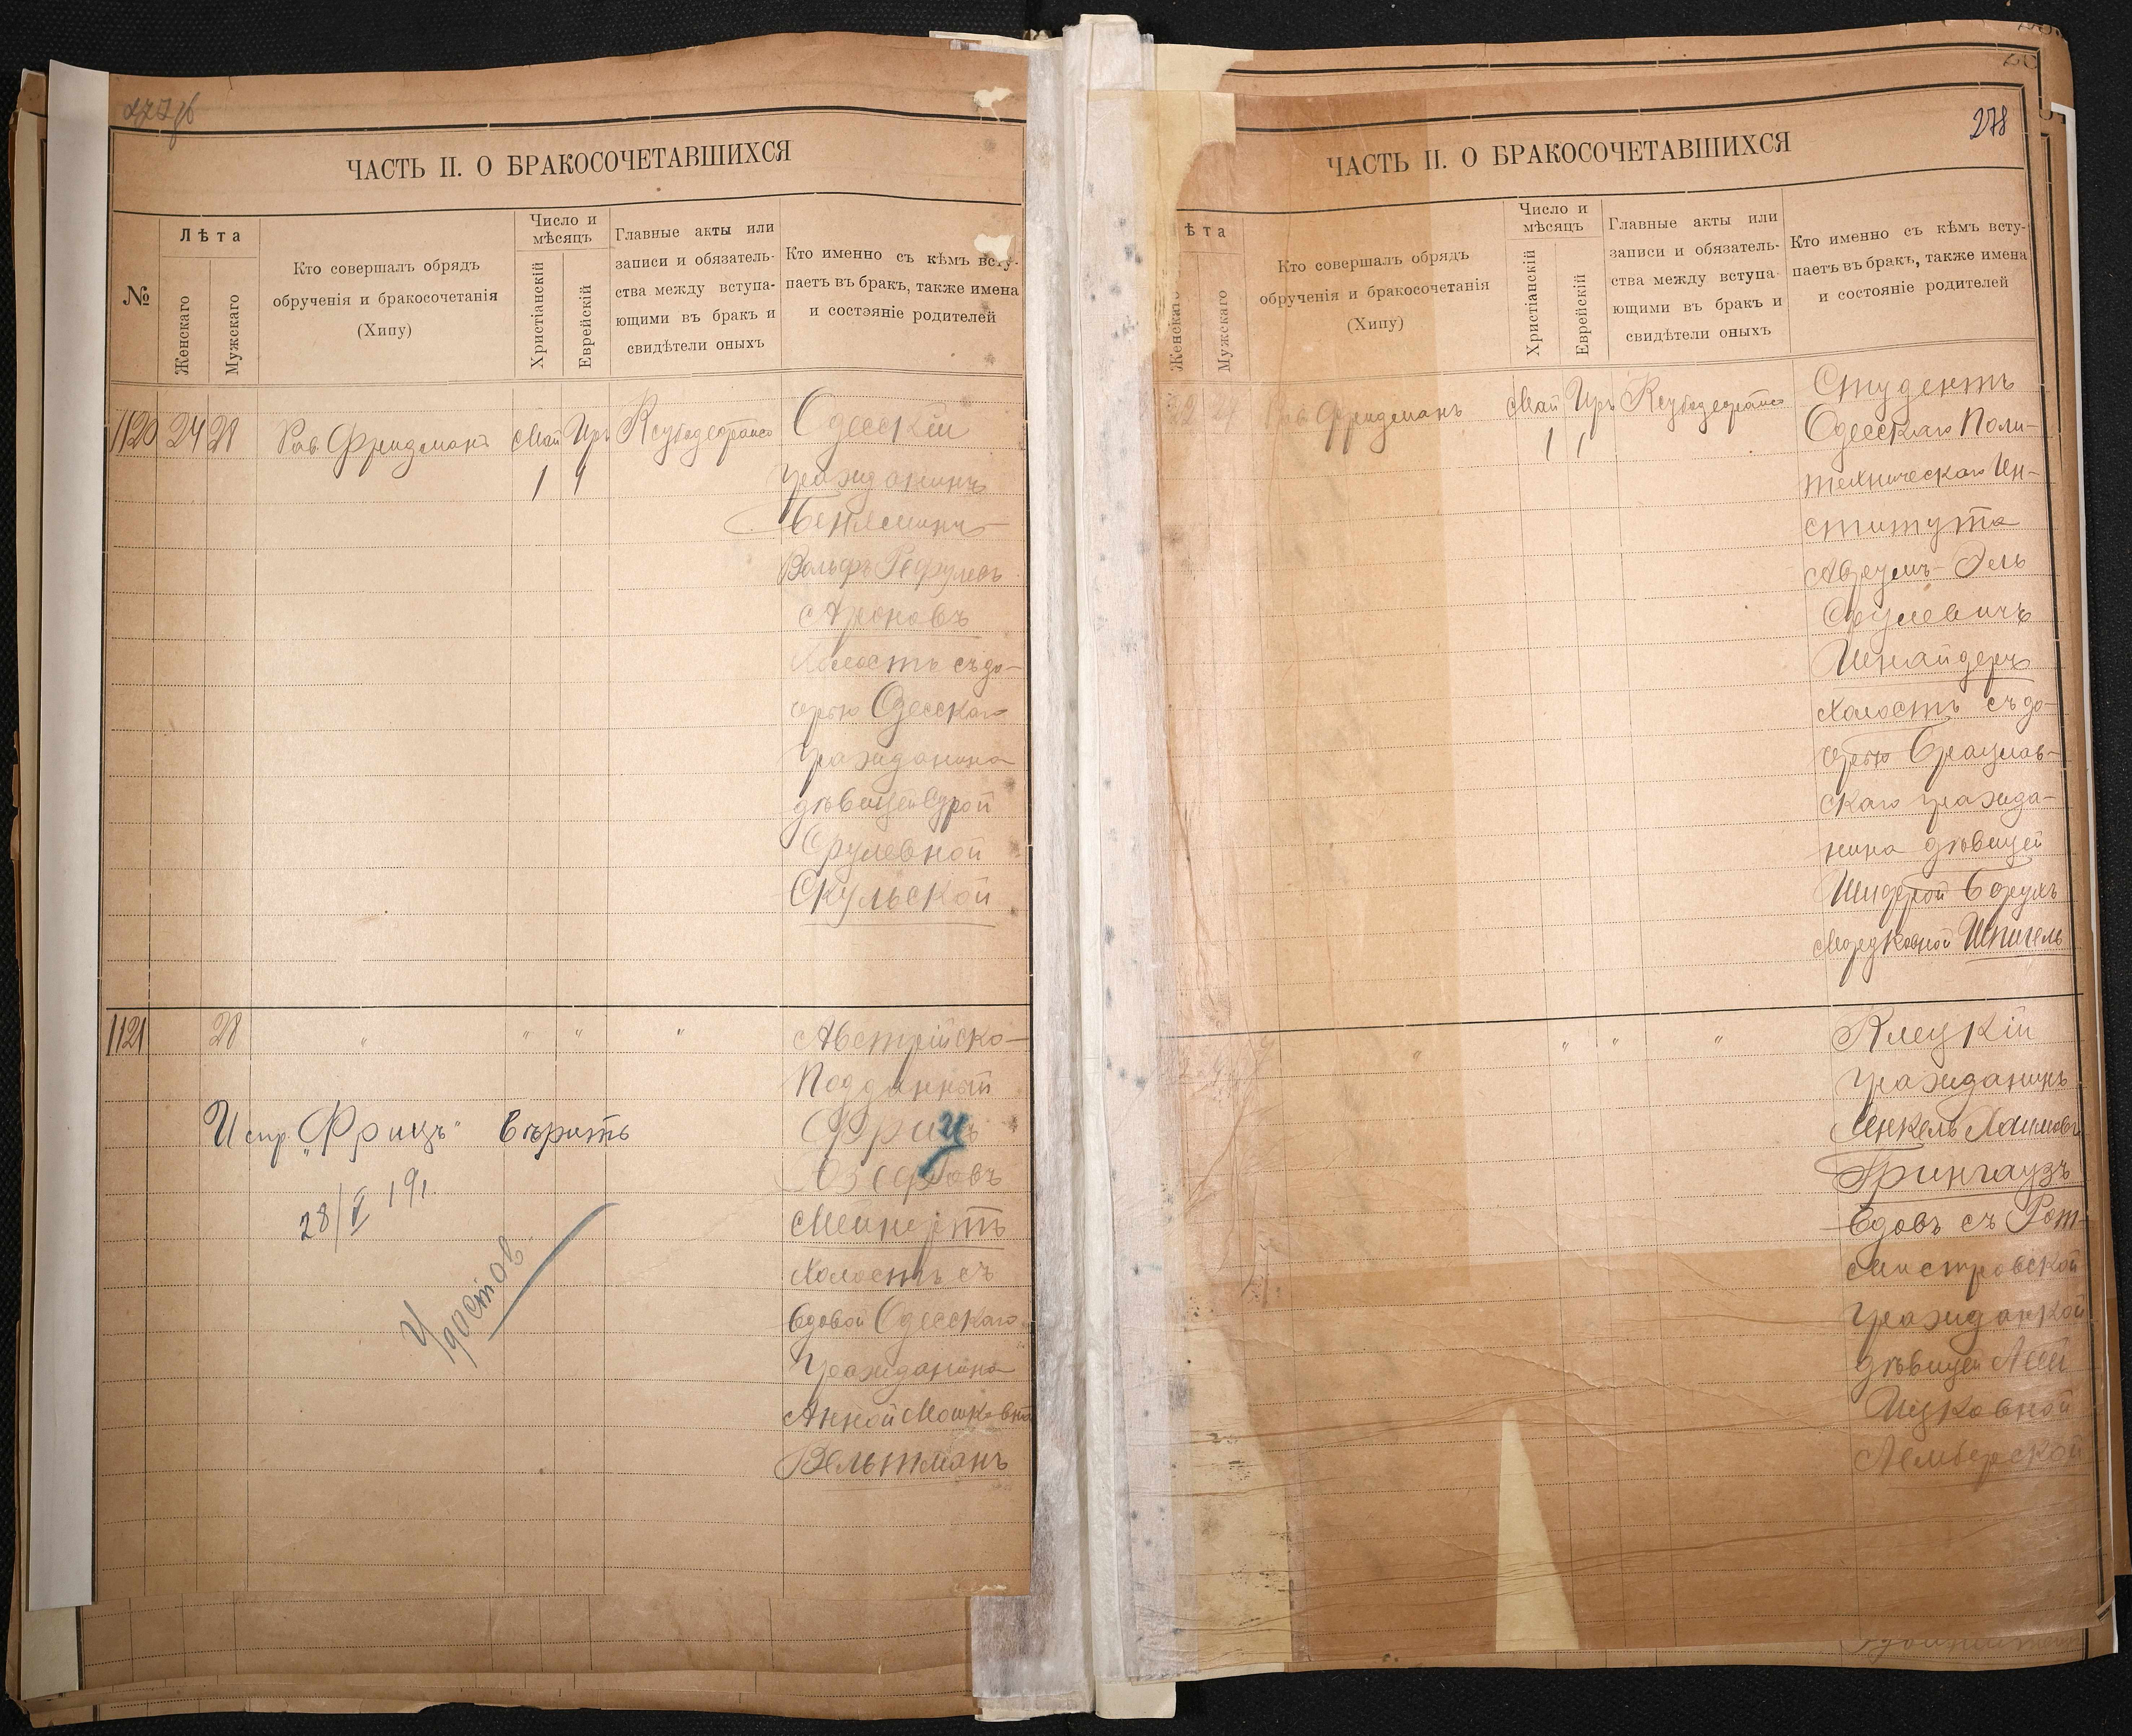 278
ЧАСТЬ II. О БРАКОСОЧЕТАВШИХСЯ
№
Лѣта
Женскаго
Мужскаго
Кто совершалъ обрядъ
обрученія и бракосочетанія
(Хипу)
Число и
мѣсяцъ
Христіанскій
Еврейскій
Главные акты или
записи и обязатель-
ства между вступа-
ющими въ бракъ и
свидѣтели оныхъ
Кто именно съ кѣмъ всту-
паетъ въ бракъ, также имена
и состояніе родителей
1120 24 28 Рав. Фридманъ Май Иръ
1
Одесскій
гражданинъ
Беньяминъ-
Вольфъ Рефулевъ
Ароновъ
Холостъ съ до-
черью Одесскаго
гражданина
дѣвицей Сурой
Срулевной
Скульской
1121 28 " " " "
Австрійско-
Подданный
Фрицъ
Озефовъ
Мейнертъ
Холостъ съ
вдовой Одесскаго
Гражданина
Анной Мошковной
Вельтманъ
Испр. „Фрицъ" вѣрить
28/V 191
ЧАСТЬ II. О БРАКОСОЧЕТАВШИХСЯ
ѣта
Женскаго
Мужскаго
Кто совершалъ обрядъ
обрученія и бракосочетанія
(Хипу)
Число и
мѣсяцъ
Христіанскій
Еврейскій
Главные акты или
записи и обязатель-
ства между вступа-
ющими въ бракъ и
свидѣтели оныхъ
Кто именно съ кѣмъ всту-
паетъ въ бракъ, также имена
и состояніе родителей
22 Рав. Фридманъ Май Иръ
1 1
Студентъ
Одесскаго Поли-
техническаго Ин-
ститута
Аврумъ-Эль
Срулевичъ
Шнайдеръ
Холостъ съ до-
черью Брацлав-
скаго гражда-
нина дѣвицей
Шифрой Борухъ
Мордковной Шпигель
" " " "
Клецкій
гражданинъ
Янкель Хаимовъ
Грингаузъ
вдовъ съ Рот-
мистровской
гражданкой
дѣвицей
Ицковной
Лемберской